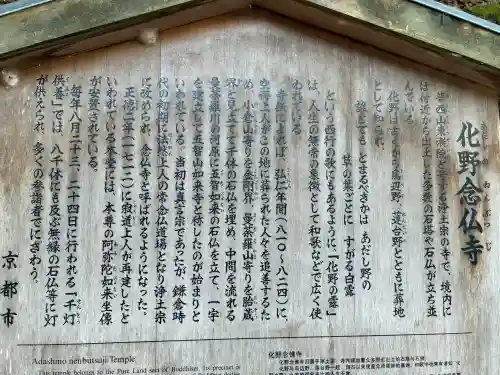 化野念仏寺
華西山東漸院と号する浄土宗の寺で、境内に
は付近から出土した多数の石塔や石仏が立ち並
んでいる。
化野は古くから鳥辺野・蓮台野とともに葬地
として知られ、
誰とても とまるべきかは あだし野の
草の葉ごとに すがる白露
という西行の歌にもあるように、「化野の露」
は、人生の無常の象徴として和歌などで広く使
われている。
寺伝によれば、弘仁年間(八一〇~八二四)に、
空海上人がこの地に葬られた人々を追善するた
め、小倉山寄りを金剛界、曼荼羅山寄りを胎蔵
界と見立てて千体の石仏を埋め、中間を流れる
曼荼羅川の河原に五智如来の石仏を立て、一宇
を建立して五智山如来寺と称したのが始まりと
いわれている。当初は真言宗であったが、鎌倉時
代の初期に法然上人の常念仏道場となり浄土宗
に改められ、念仏寺と呼ばれるようになった。
正徳二年(一七一二)に寂道上人が再建したと
いわれている本堂には、本尊の阿弥陀如来坐像
が安置されている。
毎年八月二十三、二十四日に行われる「千灯
供養」では、八千体にも及ぶ無縁の石仏等に灯
が供えられ、多くの参詣者でにぎわう。
京都市
Adashino nenbutsuji Temple
This temple belongs to the Pure Land sect of Buddhism. Its precinct or
化野念佛寺